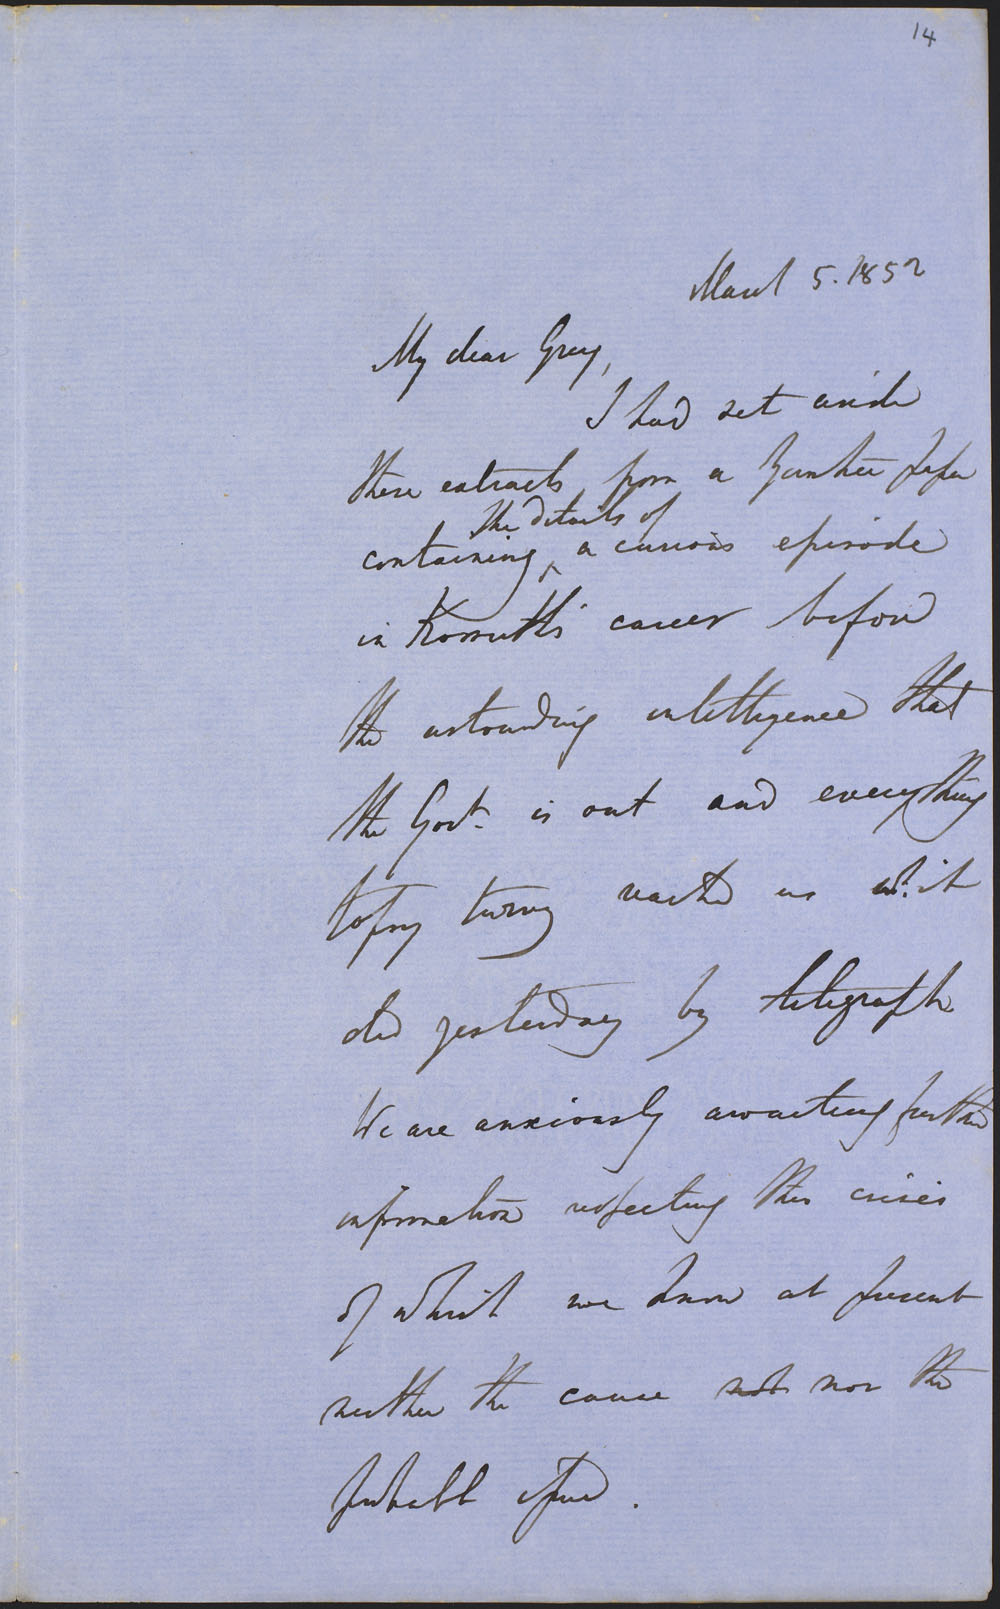 14
March 5. 1852
My dear Grey,
I had set aside
these extracts from a Yankee paper
the details of
containing ^ a curious episode
in Kossuth's career before
the astounding intelligence that
the Govt. is out and everything
topsy turvy reached us wh. it
did yesterday by telegraph
We are anxiously awaiting further
information respecting this crisis
of which we know at present
neither the cause nor the
probable